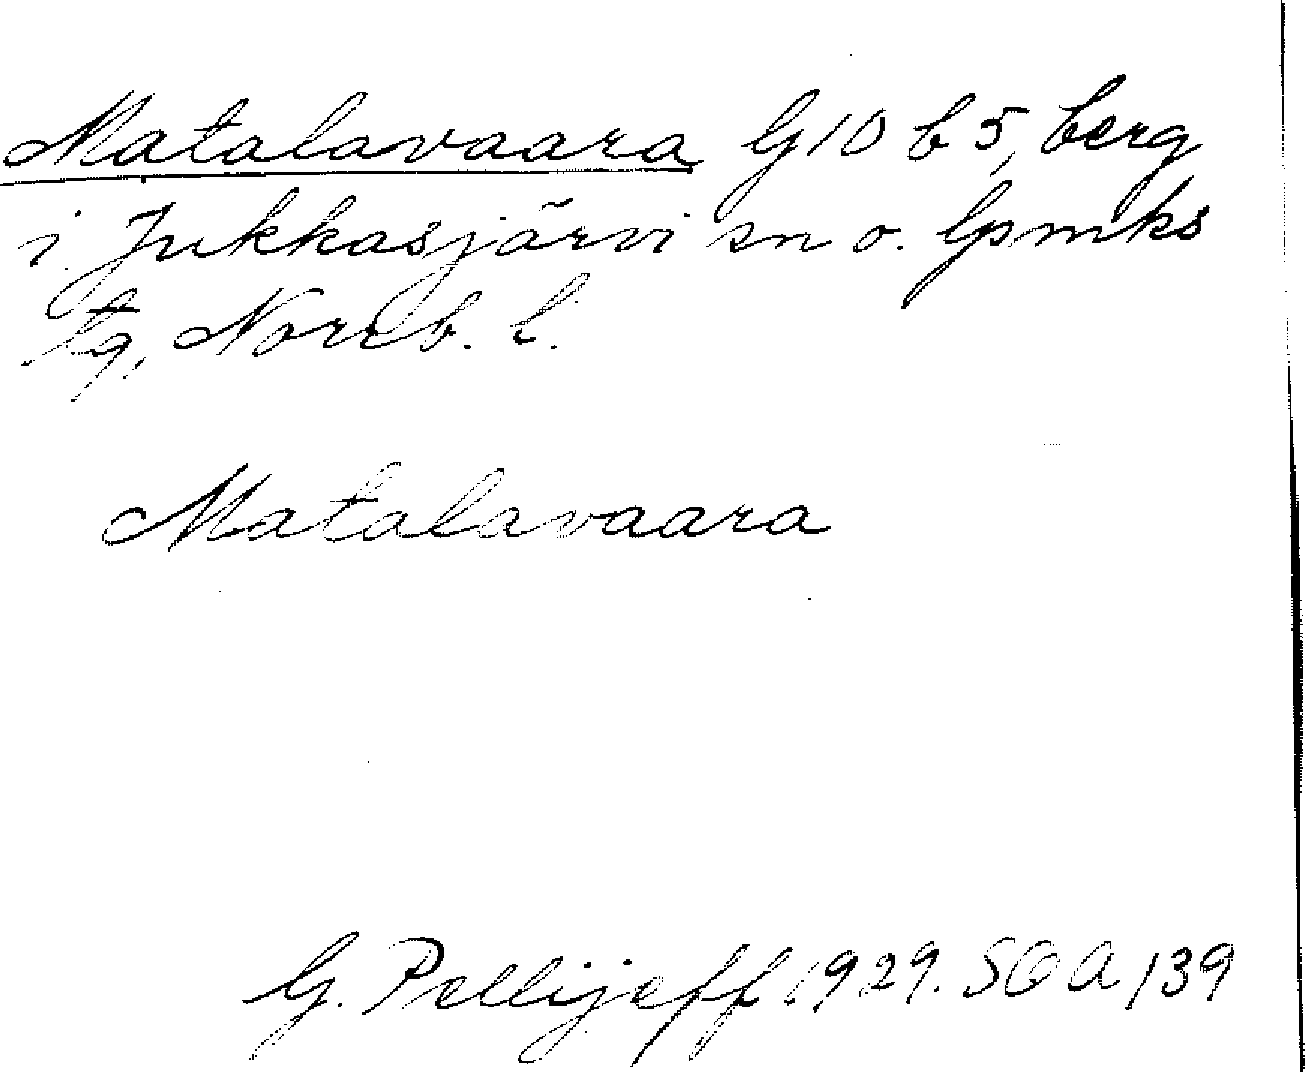 Matalavaara G10 b 5, berg
i Jukkasjärvi sn o. lpmks
tg, Norrb. l.
Matalavaara
G. Pellijeff 1929. SOA 139